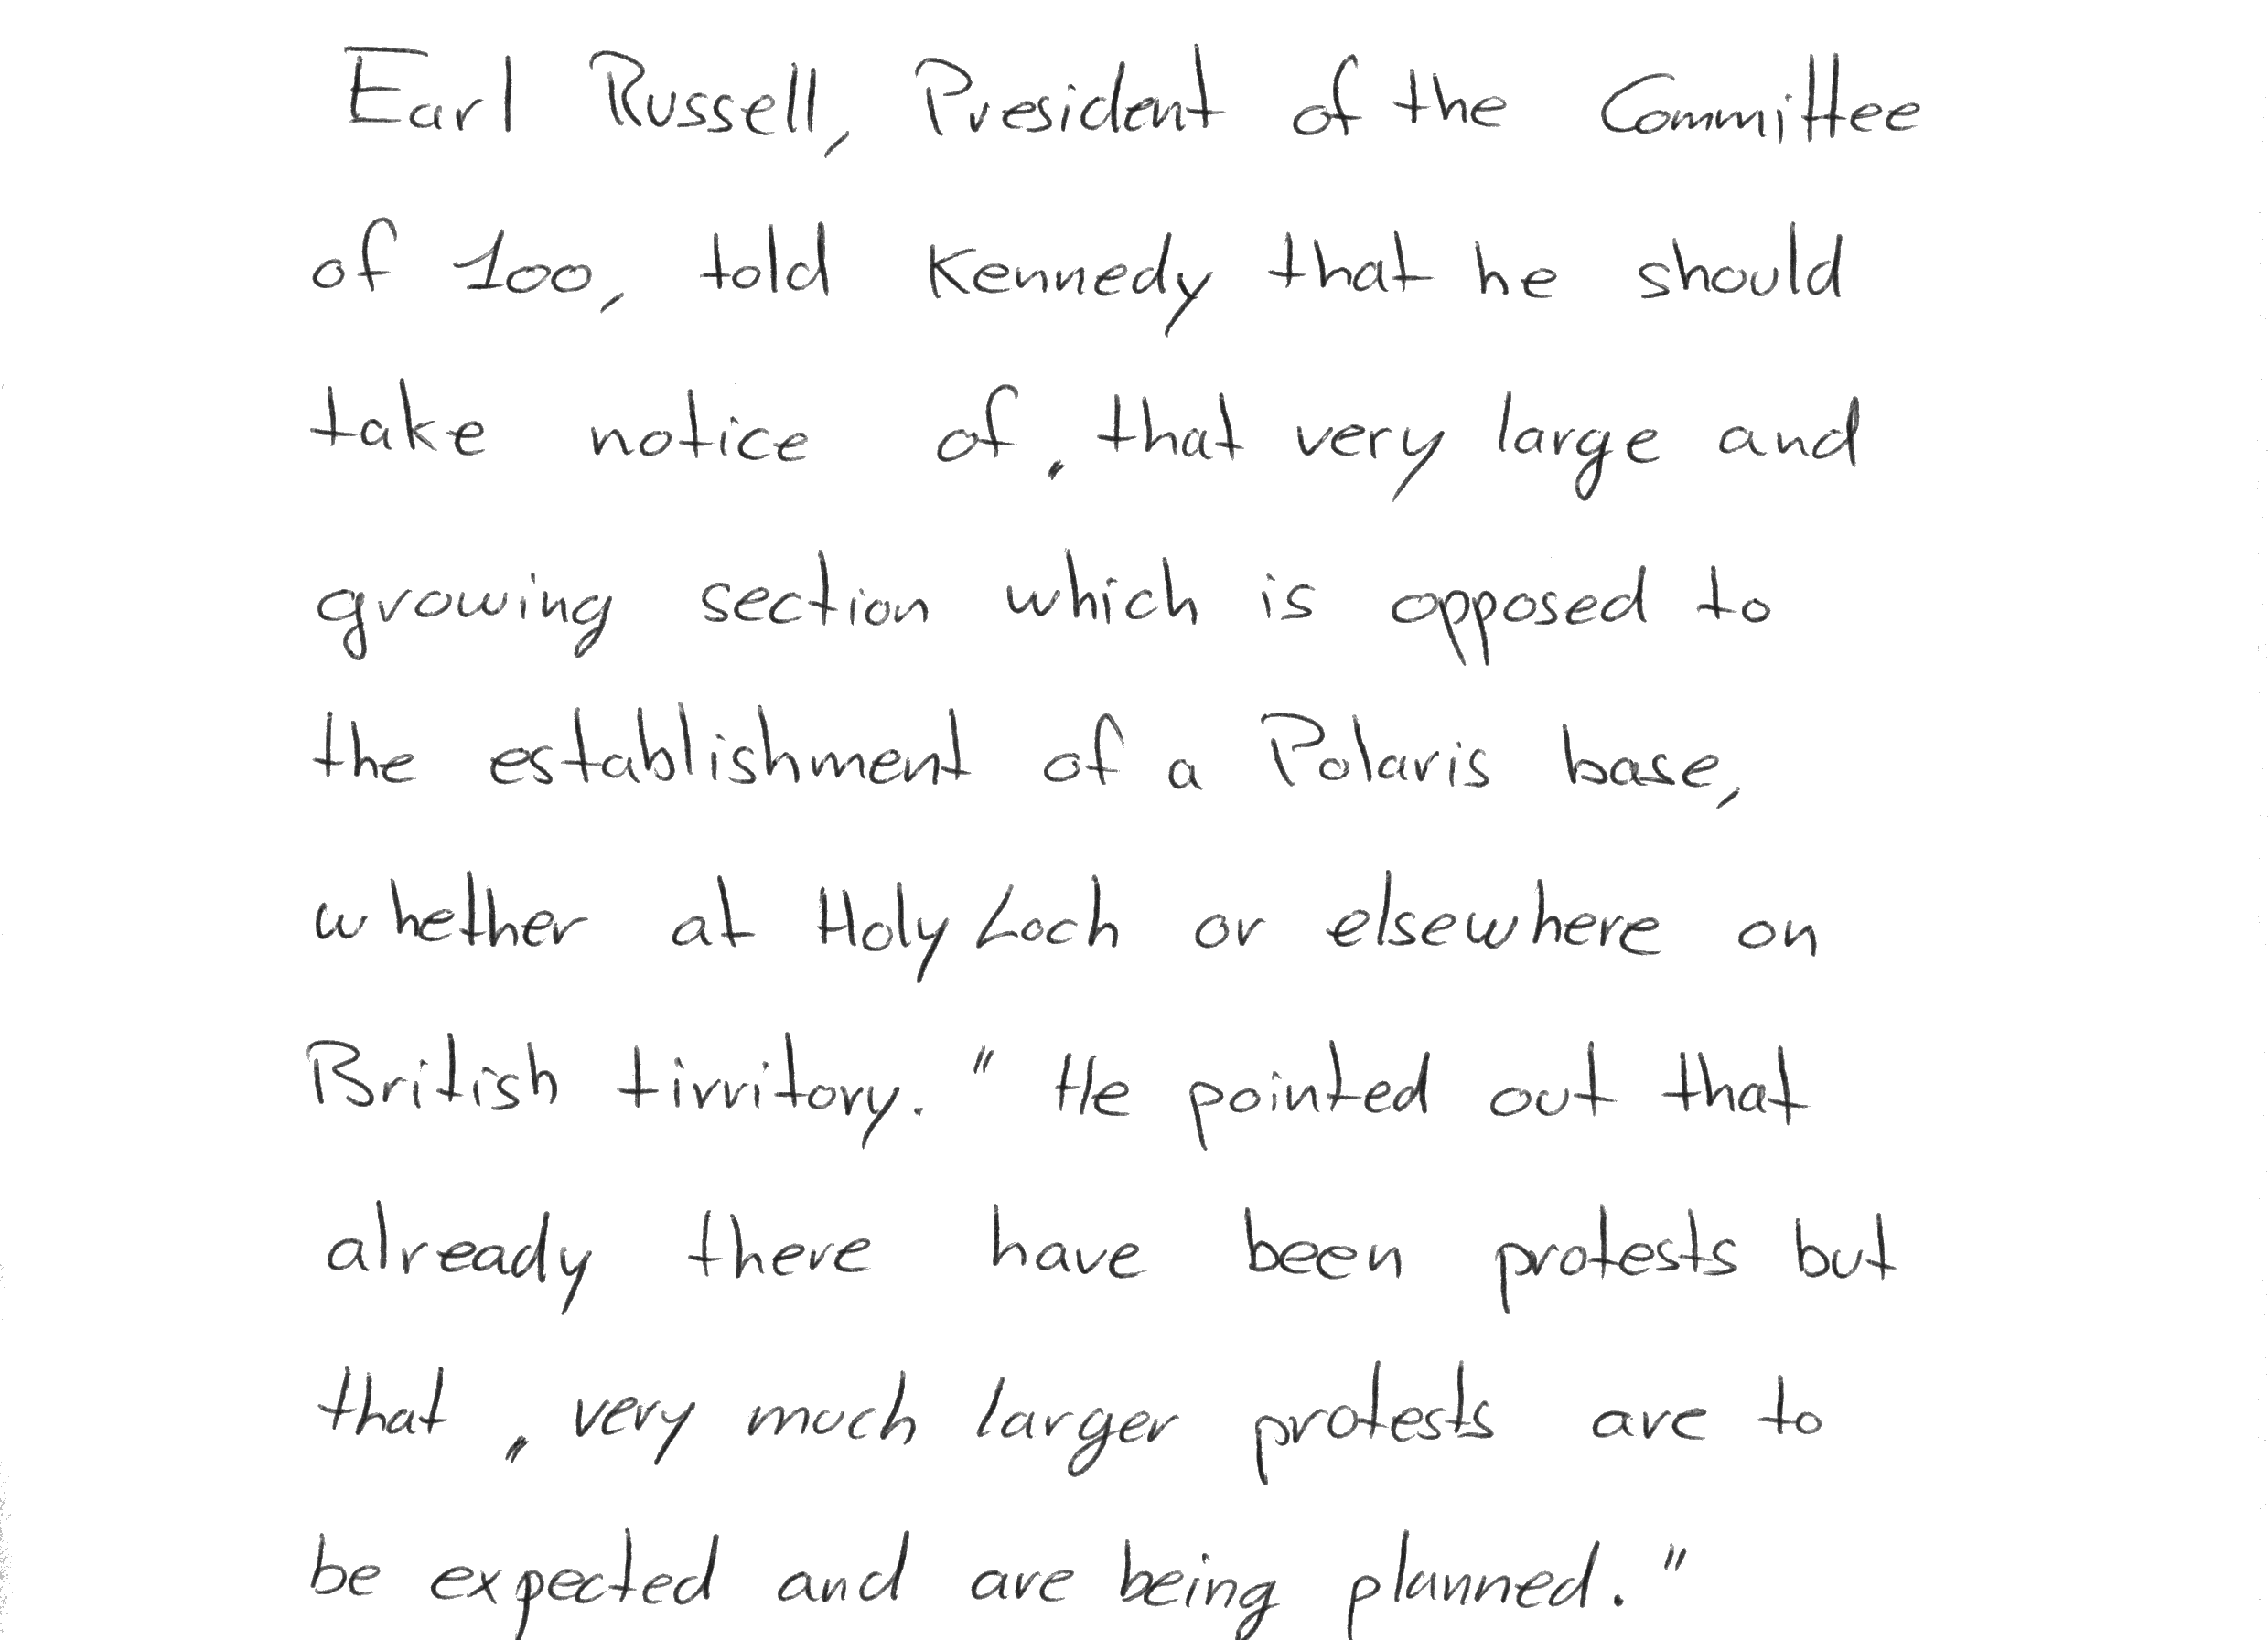 Earl Russell, President of the Committee
of 100, told Kennedy that he should
take notice of „that very large and
growing section which is opposed to
the establishment of a Polaris base,
whether at Holy Loch or elsewhere on
British tirritory." He pointed out that
already there have been protests but
that „very much larger protests are to
be expected and are being planned."